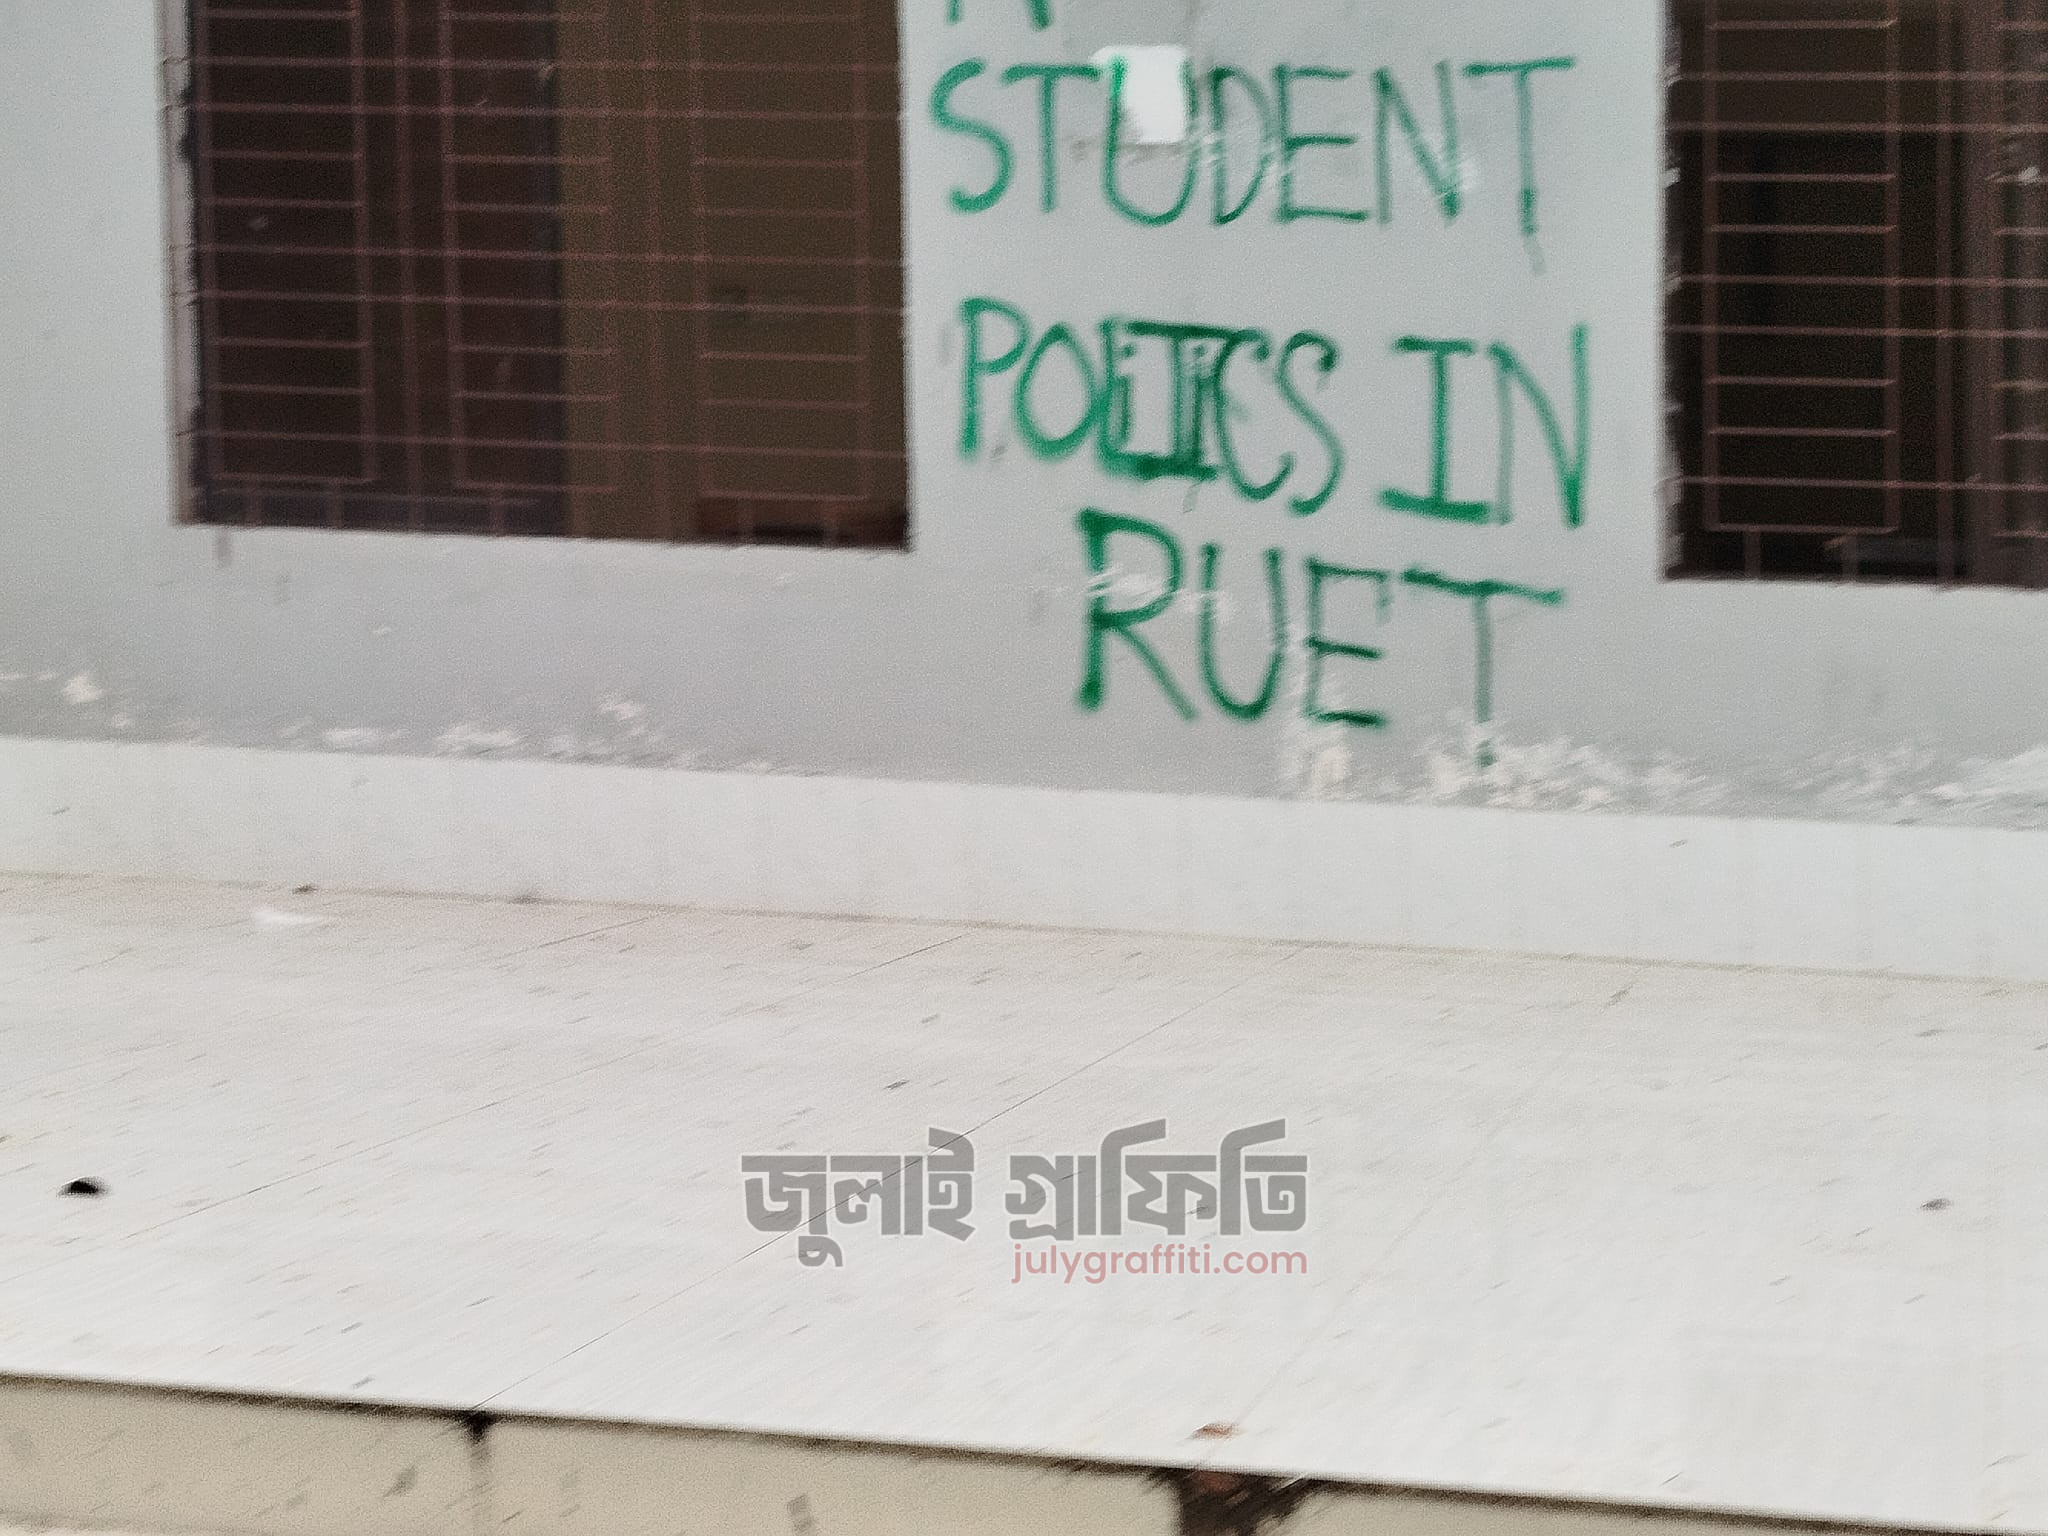 STUDENT
POLiTiCS IN
RUET
জুলাই গ্রাফিতি
julygraffiti.com